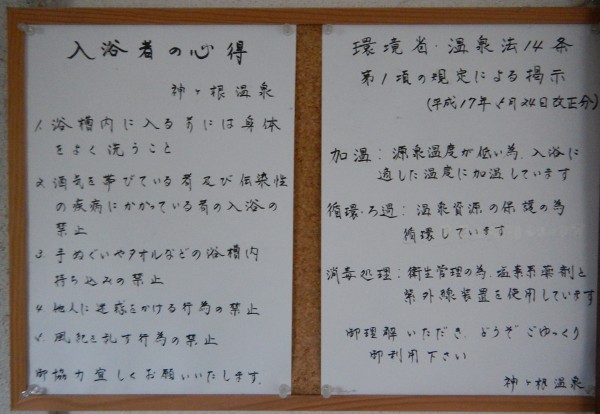 入浴者の心得
神ヶ根温泉
1. 浴槽内に入る前には身体
をよく洗うこと
2. 酒気を帯びている者及び伝染性
の疾病にかかっている者の入浴の
禁止
3. 手ぬぐいやタオルなどの浴槽内
持ち込みの禁止
4. 他人に迷惑をかける行為の禁止
5. 風紀を乱す行為の禁止
御協力宜しくお願いいたします.
環境省・温泉法14条
第1項の規定による掲示
(平成17年5月24日改正分)
加温: 源泉温度が低い為、入浴に
適した温度に加温しています
循環・ろ過: 温泉資源の保護の為
循環しています
消毒処理: 衛生管理の為、塩素系薬剤と
紫外線装置を使用しています
御理解いただき、どうぞごゆっくり
御利用下さい
神ヶ根温泉